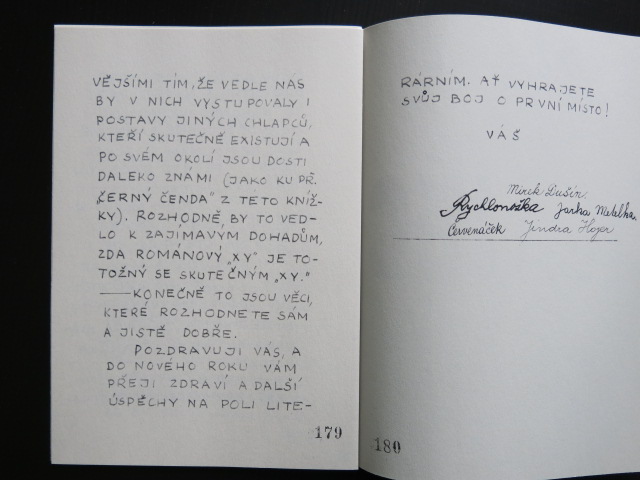 VĚJŠÍMI TÍM, ŽE VEDLE NÁS
BY V NICH VYSTUPOVALY I
POSTAVY JINÝCH CHLAPCŮ,
KTEŘÍ SKUTEČNĚ EXISTUJÍ A
PO SVÉM OKOLÍ JSOU DOSTI
DALEKO ZNÁMI (JAKO KU PŘ.
„ČERNÝ ČENDA" Z TÉTO KNÍŽ-
KY). ROZHODNĚ BY TO VED-
LO K ZAJÍMAVÝM DOHADŮM,
ZDA ROMÁNOVÝ „XY" JE TO-
TOŽNÝ SE SKUTEČNÝM „XY."
—KONEČNĚ TO JSOU VĚCI,
KTERÉ ROZHODNETE SÁM
A JISTĚ DOBŘE.
POZDRAVUJI VÁS, A
DO NOVÉHO ROKU VÁM
PŘEJI ZDRAVÍ A DALŠÍ
ÚSPĚCHY NA POLI LITE-
179
RÁRNÍM. AŤ VYHRAJETE
SVŮJ BOJ O PRVNÍ MÍSTO!
VÁŠ
Mirek Dušín
Rychlonožka Jarka Metelka
Červenáček Jindra Hojer
180